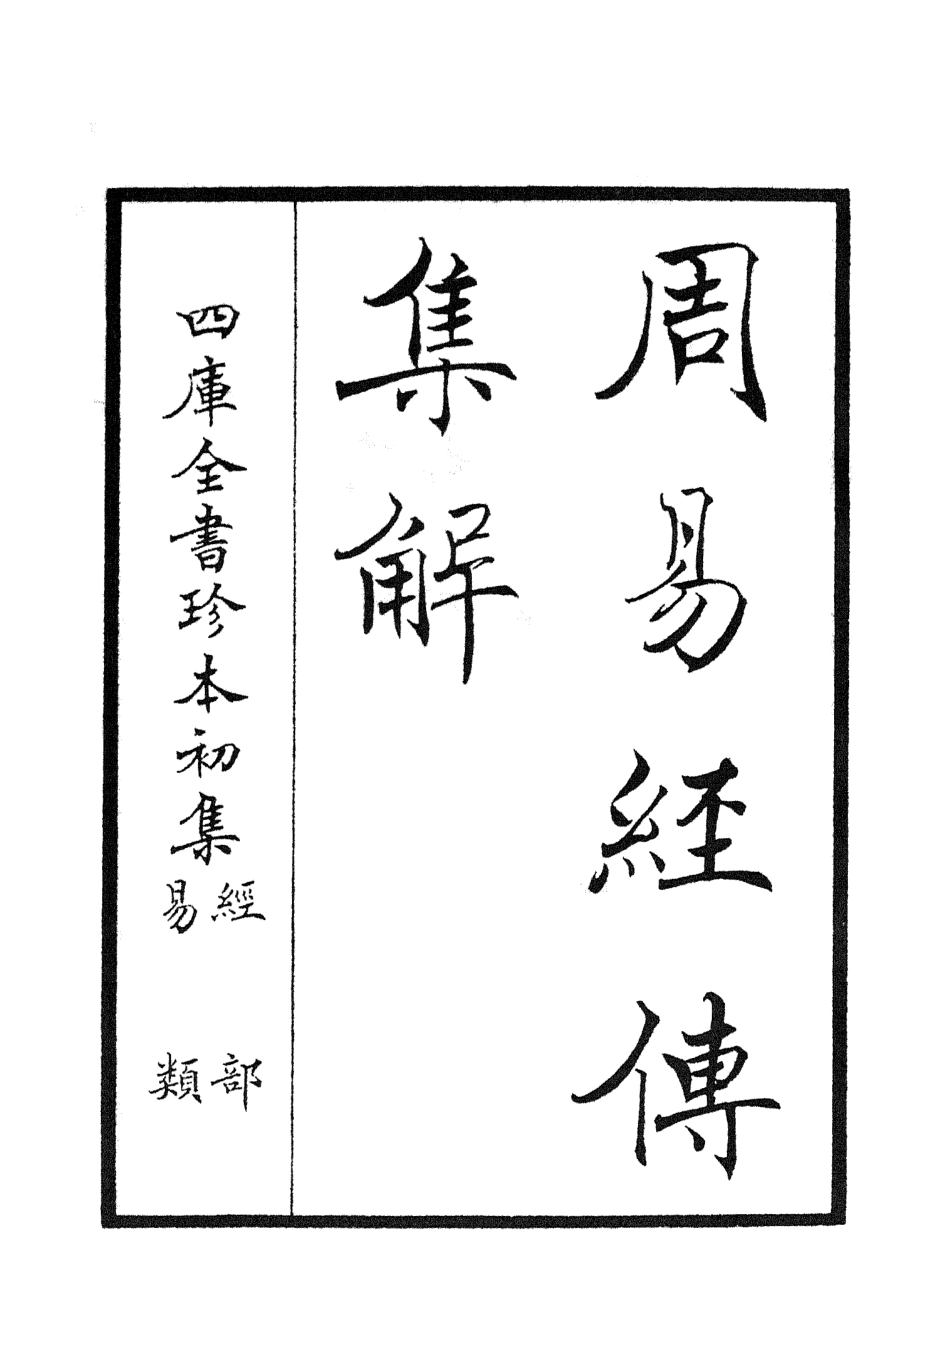 周易經傳
集解
四庫全書珍本初集
經部
易類